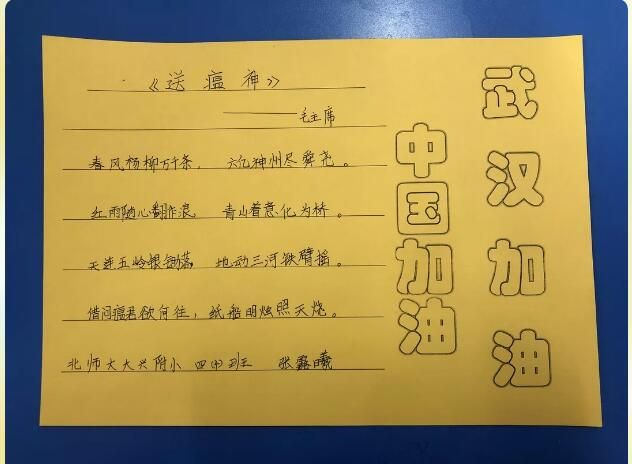 《送瘟神》
——毛主席
春风杨柳万千条, 六亿神州尽舜尧。
红雨随心翻作浪 青山着意化为桥。
天连五岭银锄落 地动三河铁臂摇。
借问瘟君欲何往, 纸船明烛照天烧。
北师大大兴附小 四(4)班 张露曦
中国加油
武汉加油